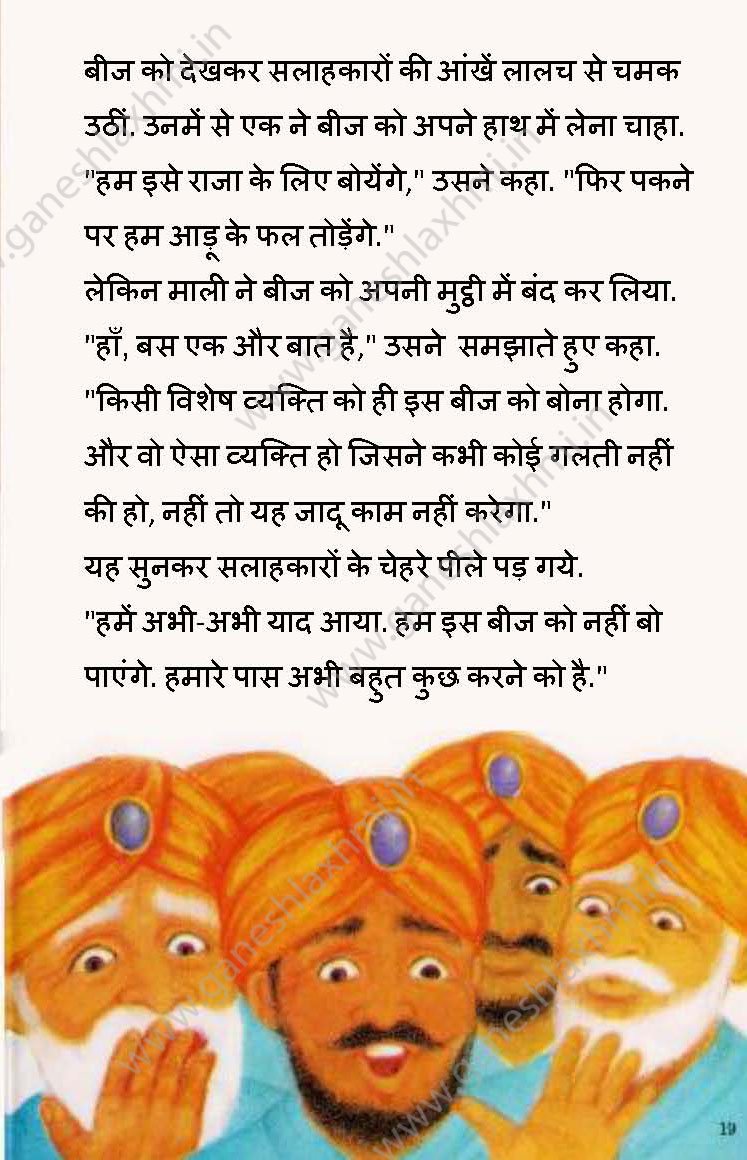 बीज को देखकर सलाहकारों की आंखें लालच से चमक
उठीं. उनमें से एक ने बीज को अपने हाथ में लेना चाहा.
"हम इसे राजा के लिए बोयेंगे," उसने कहा. "फिर पकने
पर हम आड़ू के फल तोड़ेंगे."
लेकिन माली ने बीज को अपनी मुट्ठी में बंद कर लिया.
"हाँ, बस एक और बात है," उसने समझाते हुए कहा.
"किसी विशेष व्यक्ति को ही इस बीज को बोना होगा.
और वो ऐसा व्यक्ति हो जिसने कभी कोई गलती नहीं
की हो, नहीं तो यह जादू काम नहीं करेगा."
यह सुनकर सलाहकारों के चेहरे पीले पड़ गये.
"हमें अभी-अभी याद आया. हम इस बीज को नहीं बो
पाएंगे. हमारे पास अभी बहुत कुछ करने को है."
19
www.ganeshlaxhmi.in
www.ganeshlaxhmi.in
www.ganeshlaxhmi.in
www.ganeshlaxhmi.in
www.ganeshlaxhmi.in